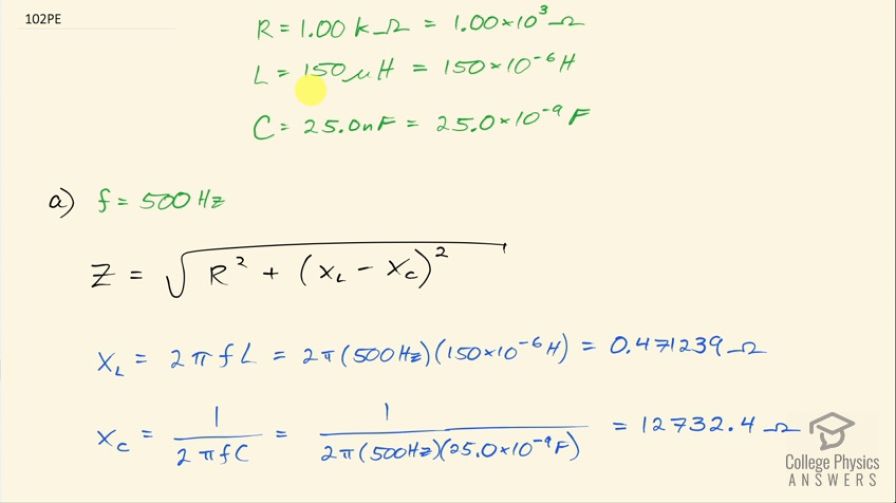 102PE
R = 1.00 kΩ = 1.00×10³ Ω
L = 150 μH = 150×10⁻⁶ H
C = 25.0nF = 25.0×10⁻⁹ F
a) f = 500 Hz
Z = √(R² + (X_L − X_C)²)
X_L = 2πfL = 2π(500Hz)(150×10⁻⁶H) = 0.471239 Ω
X_C = 1/(2πfC) = 1/(2π(500Hz)(25.0×10⁻⁹F)) = 12732.4 Ω
College Physics
ANSWERS